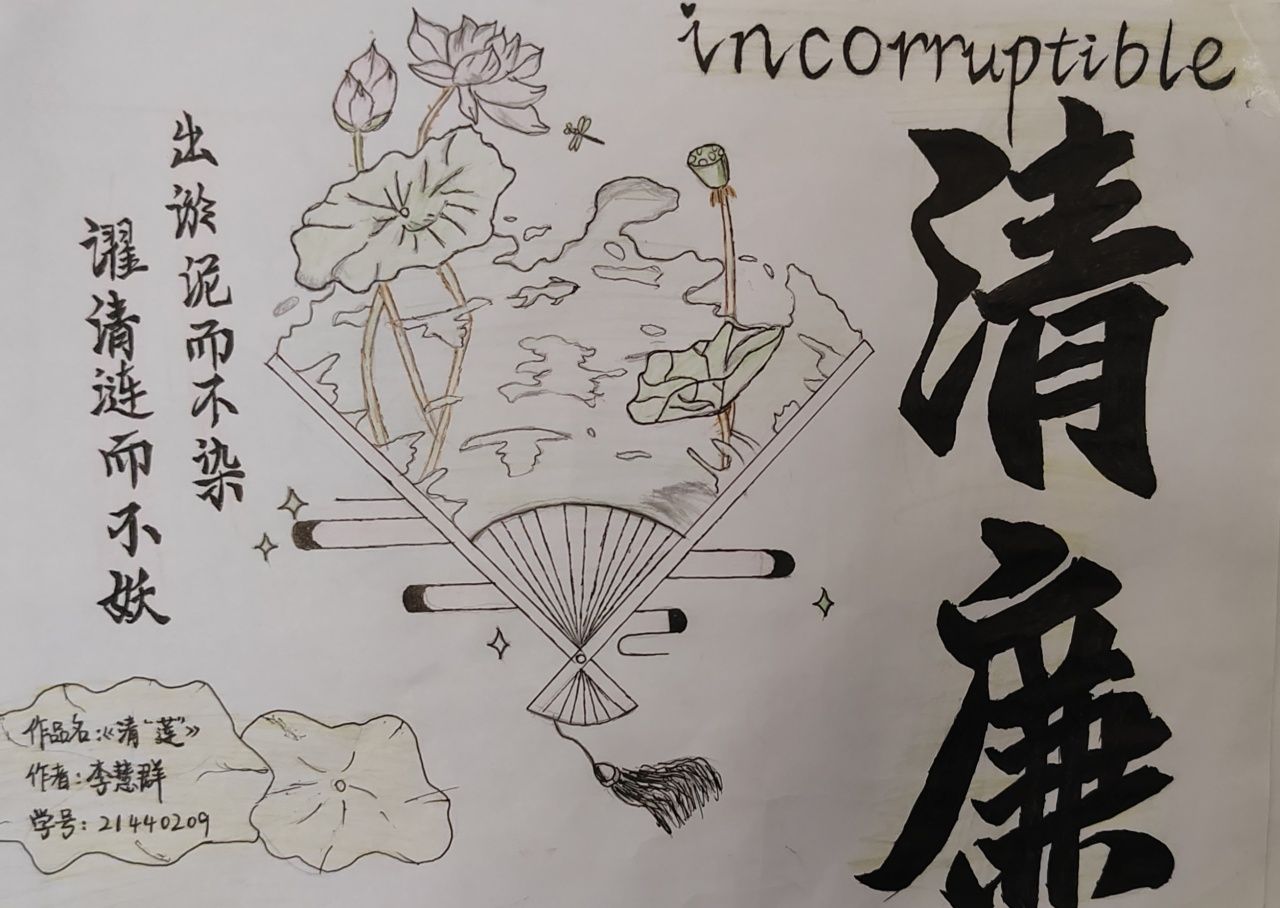 incorruptible
清廉
出淤泥而不染
濯清涟而不妖
作品名:《清“莲”》
作者:李慧群
学号:21440209